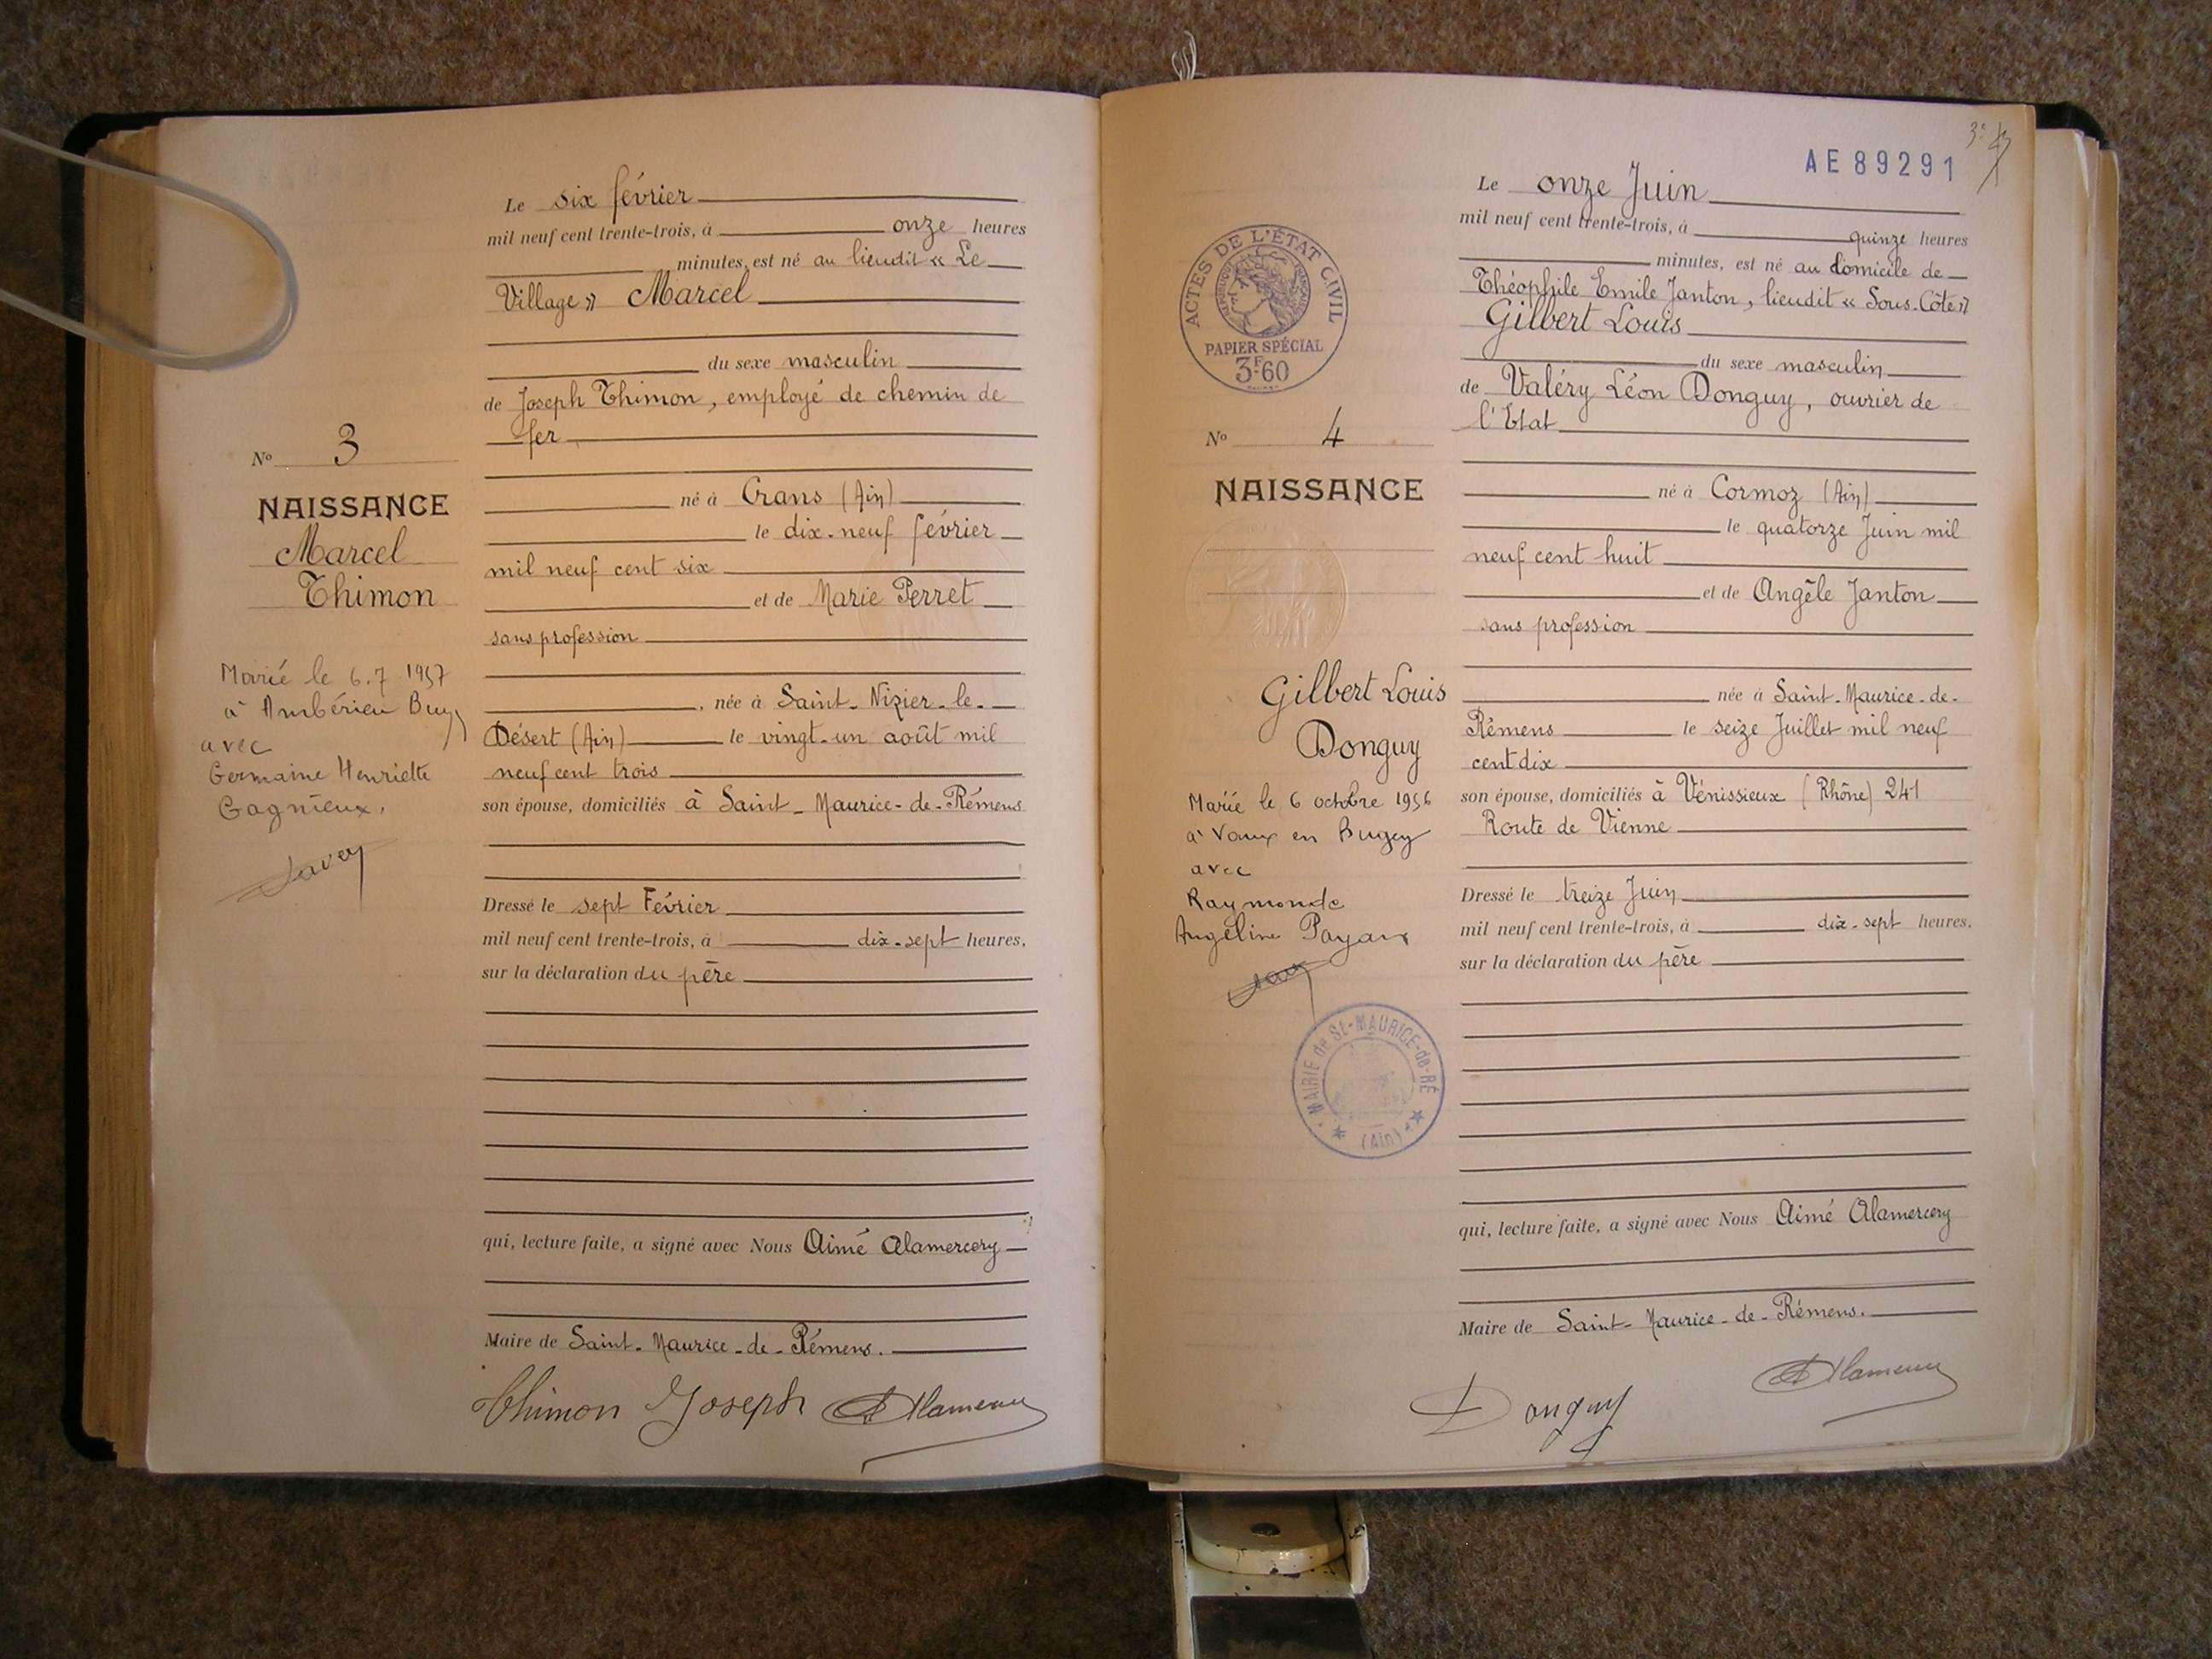 Le six février
mil neuf cent trente-trois, à onze heures
minutes, est né au lieudit « Le
Village » Marcel
du sexe masculin
de Joseph Thimon, employé de chemin de
fer
né à Crans (Ain)
le dix-neuf février
mil neuf cent six
et de Marie Perret
sans profession
, née à Saint-Nizier-le-
Désert (Ain) le vingt-un août mil
neuf cent trois
son épouse, domiciliés à Saint-Maurice-de-Rémens
Dressé le sept Février
mil neuf cent trente-trois, à dix-sept heures,
sur la déclaration du père
qui, lecture faite, a signé avec Nous Aimé Alamercery
Maire de Saint-Maurice-de-Rémens.
Thimon Joseph
No 3
NAISSANCE
Marcel
Thimon
Marié le 6.7 1957
à Ambérieu Bugy
avec
Germaine Henriette
Gagnieux.
AE 89291
ACTES DE L'ÉTAT CIVIL
RÉPUBLIQUE FRANÇAISE
PAPIER SPÉCIAL
3F60
No 4
NAISSANCE
Gilbert Louis
Donguy
Marié le 6 octobre 1956
à Vaux en Bugey
avec
Raymonde
Angéline
MAIRIE de St-MAURICE-de-RÉ
(Ain)
Le onze Juin
mil neuf cent trente-trois, à quinze heures
minutes, est né au domicile de
Théophile Emile Janton, lieudit « Sous-Côte »
Gilbert Louis
du sexe masculin
de Valéry Léon Donguy, ouvrier de
l'Etat
né à Cormoz (Ain)
le quatorze Juin mil
neuf cent huit
et de Angèle Janton
sans profession
née à Saint-Maurice-de-
Rémens le seize Juillet mil neuf
cent dix
son épouse, domiciliés à Vénissieux (Rhône) 241
Route de Vienne
Dressé le treize Juin
mil neuf cent trente-trois, à dix-sept heures,
sur la déclaration du père
qui, lecture faite, a signé avec Nous Aimé Alamercery
Maire de Saint-Maurice-de-Rémens.
Donguy